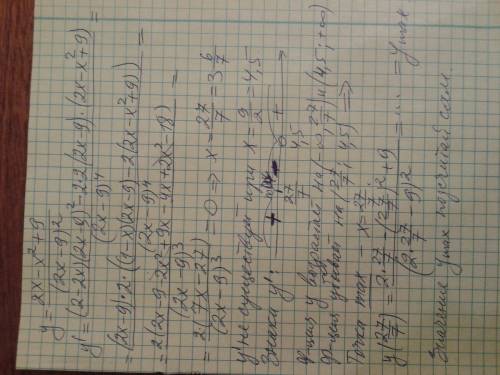 y = (2x - x² + 9)/(2x-9)²
y' = ((2-2x)(2x-9)² - 2·2(2x-9)·(2x-x²+9))/(2x-9)⁴ =
= ((2x-9)·2·((1-x)(2x-9) - 2(2x-x²+9)))/(2x-9)⁴ =
= 2(2x-9-2x²+9x-4x+2x²-18)/(2x-9)³ =
= 2(7x-27)/(2x-9)³ = 0 => x = 27/7 = 3 6/7
y' не существует при x = 9/2 = 4,5
Знаки y':
+ max - +
27/7 4,5
Ф-ция y возрастает на (-∞; 27/7) и (4,5; +∞)
Ф-ция убывает на (27/7; 4,5) =>
Точка max - x = 27/7
y(27/7) = (2·27/7 - (27/7)² + 9)/(2·27/7 - 9)² = ... = y max
Значение y max посчитай сам.